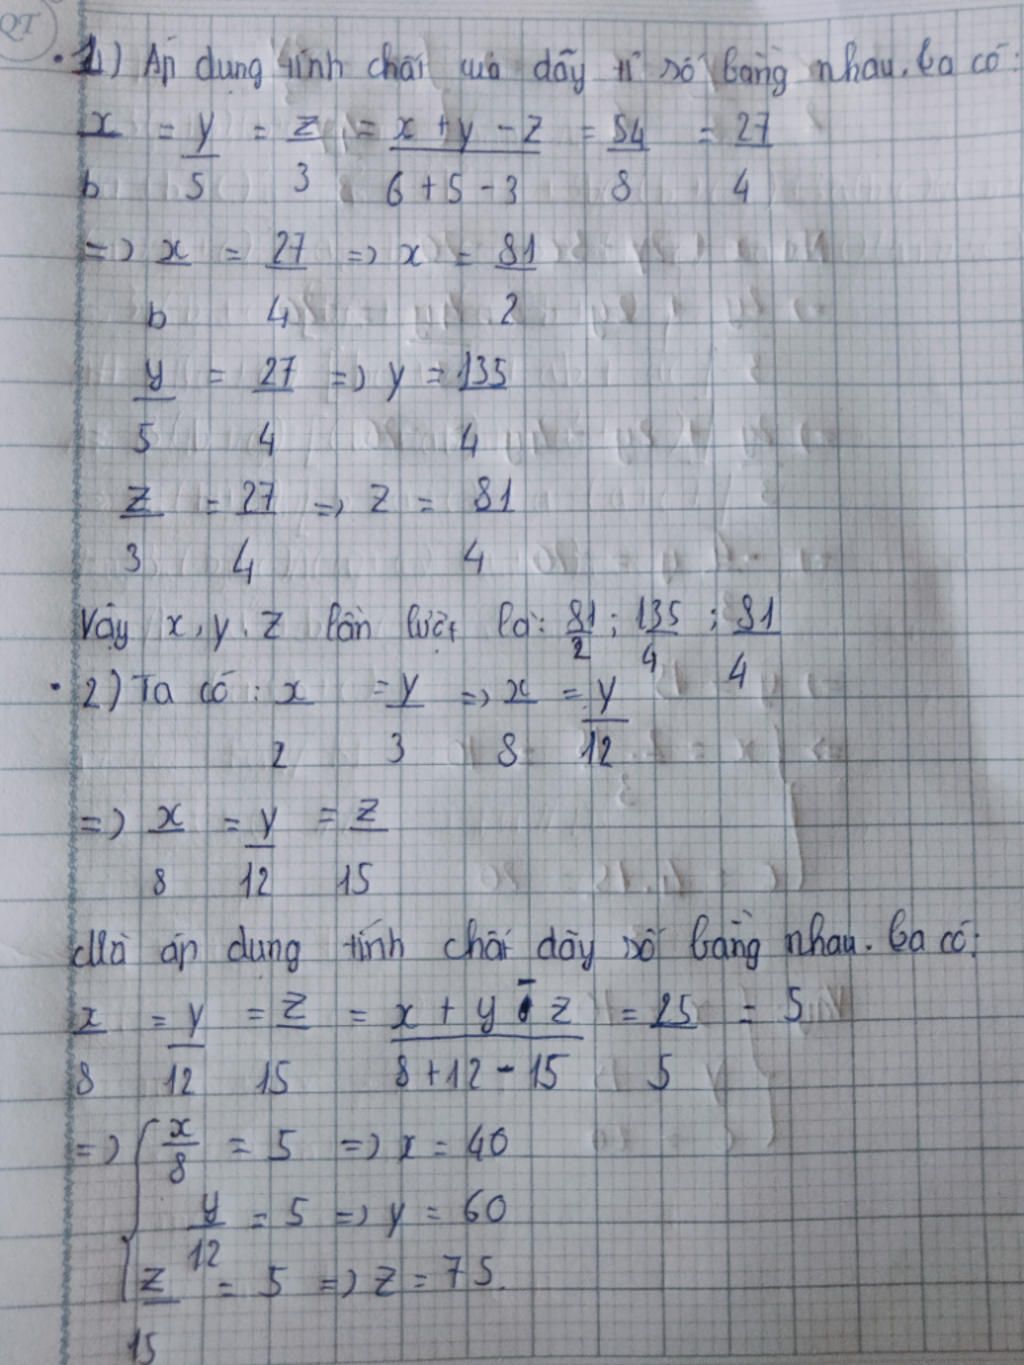 QT
1) Áp dụng tính chất của dãy tỉ số bằng nhau. ta có:
x/6 = y/5 = z/3 = (x + y - z)/(6 + 5 - 3) = 54/8 = 27/4
=> x/6 = 27/4 => x = 81/2
y/5 = 27/4 => y = 135/4
z/3 = 27/4 => z = 81/4
Vậy x, y, z lần lượt là: 81/2 ; 135/4 ; 81/4
2) Ta có : x/2 = y/3 => x/8 = y/12
=> x/8 = y/12 = z/15
Mà áp dụng tính chất dãy số bằng nhau. ta có:
x/8 = y/12 = z/15 = (x + y - z)/(8 + 12 - 15) = 25/5 = 5
=> { x/8 = 5 => x = 40
y/12 = 5 => y = 60
z/15 = 5 => z = 75.